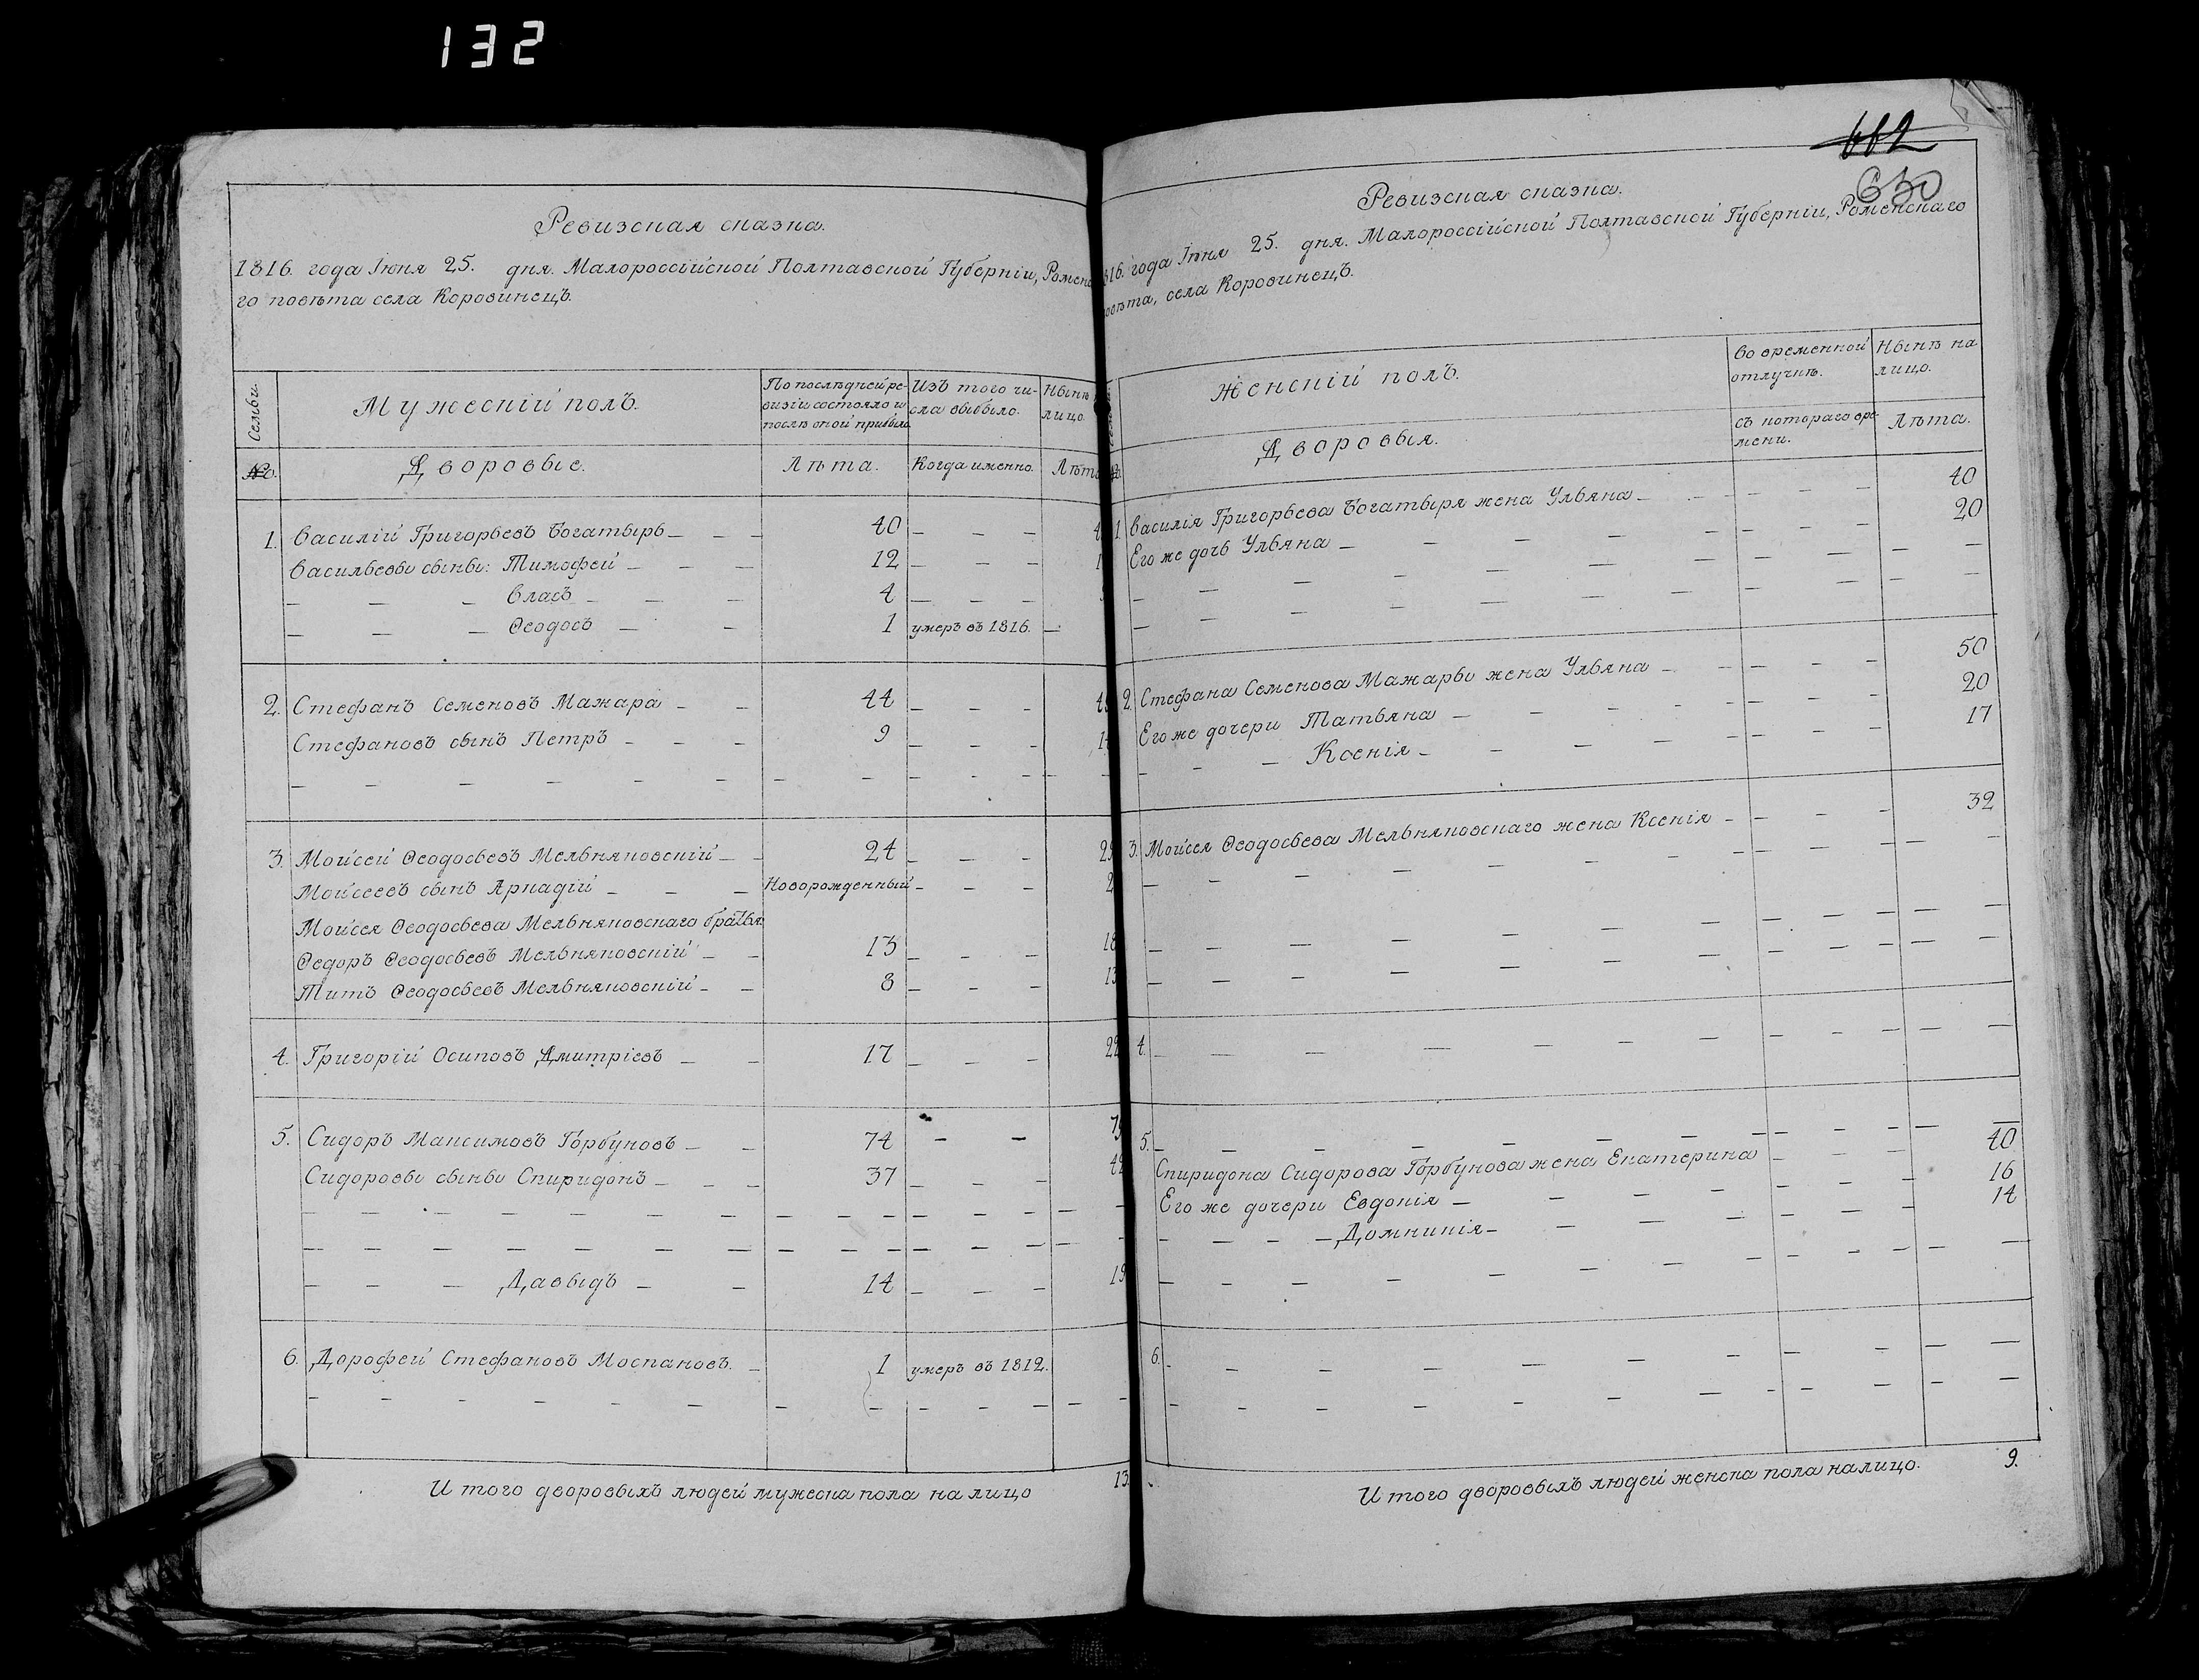 132
Ревизская сказка.
1816. года Іюня 25. дня. Малороссійской Полтавской Губерніи, Роменска
го повѣта села Коровинецъ.
Семьи.
Мужескій полъ.
По послѣдней ре-
визіи состояло и
послѣ оной прибыло
Изъ того чи-
сла выбыло.
Нынѣ
лицо.
№о.
Дворовые.
Лѣта.
Когда именно.
Лѣта
1. Василій Григорьевъ Богатырь — — — 40 — — — 4
Васильевы сыны: Тимофей — — — 12 — — — 1
— — — Власъ — — — 4 — — —
— — — Ѳеодосъ — — 1 умеръ въ 1816. —
2. Стефанъ Семеновъ Мажара — — 44 — — — 4
Стефановъ сынъ Петръ — — — 9 — — — 1
3. Мойсей Ѳеодосьевъ Мельняковскій — — 24 — — — 29
Мойсеевъ сынъ Аркадій — — — Новорожденный — — — 2
Мойсея Ѳеодосьева Мельняковскаго братья
Ѳедоръ Ѳеодосьевъ Мельняковскій — — 13 — — — 18
Титъ Ѳеодосьевъ Мельняковскій — — 8 — — — 13
4. Григорій Осиповъ Дмитріевъ — — 17 — — — 22
5. Сидоръ Максимовъ Горбуновъ — — 74 — — 79
Сидоровы сыны Спиридонъ — — — 37 — — — 42
— — — Давыдъ — — 14 — — — 19
6. Дорофей Стефановъ Моспановъ. — 1 умеръ въ 1812.
Итого дворовыхъ людей мужеска пола на лицо 13.
662
650
Ревизская сказка.
816. года Іюня 25. дня. Малороссійской Полтавской Губерніи, Роменскаго
повѣта, села Коровинецъ.
Женскій полъ.
Во временной
отлучкѣ.
Нынѣ на
лицо.
Дворовыя.
съ котораго вре-
мени.
Лѣта.
1 Василія Григорьева Богатыря жена Ульяна — — — — 40
Его же дочь Ульяна — — — — — — — 20
2. Стефана Семенова Мажары жена Ульяна — — — — — 50
Его же дочери Татьяна — — — — — — — 20
— — — Ксенія — — — — — — — 17
3. Мойсея Ѳеодосьева Мельняковскаго жена Ксенія — — — — 32
4. — — — — — — — — — — — —
5. — — — — — — — — — — — —
Спиридона Сидорова Горбунова жена Екатерина — — — 40
Его же дочери Евдокія — — — — — — — 16
— — — — Домникія — — — — — — — 14
6. — — — — — — — — — —
Итого дворовыхъ людей женска пола на лицо. 9.